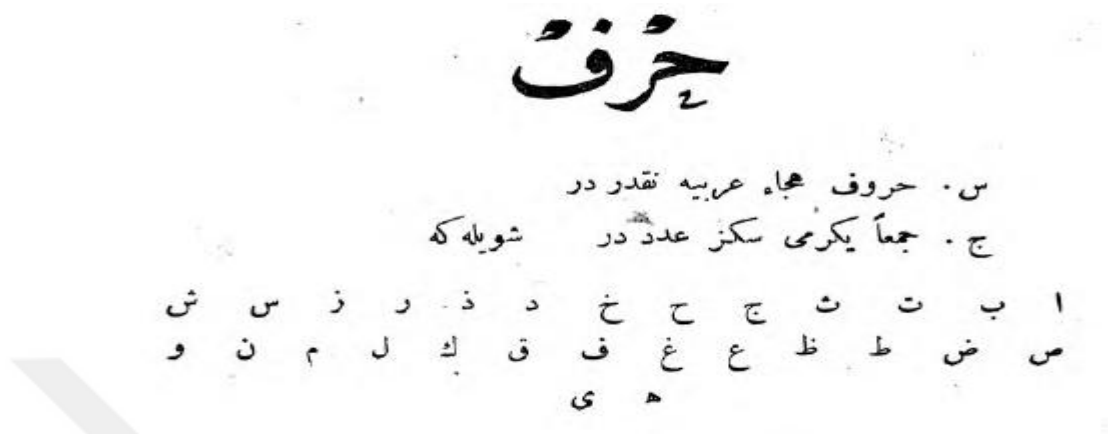 حرف
س. حروف هجاء عربيه نقدر در
ج. جمعاً يكرمى سكز عدد در شويله كه
ا ب ت ث ج ح خ د ذ ر ز س ش
ص ض ط ظ ع غ ف ق ك ل م ن و
ه ى